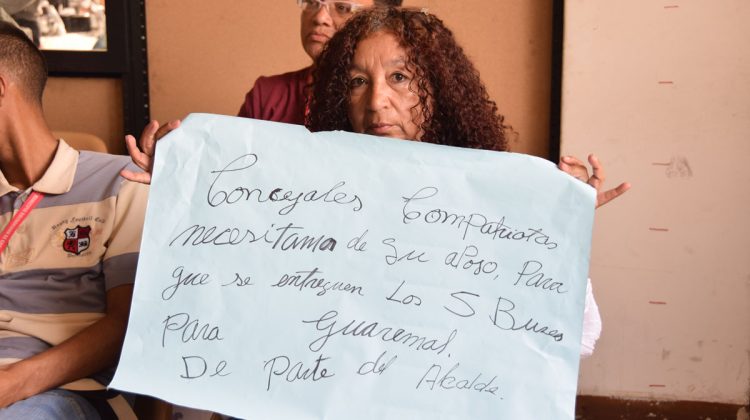 Concejales Compatriotas
necesitamo de su apollo, Para
que se entreguen Los 5 Buses
Para Guaremal.
De Parte del Alcalde.